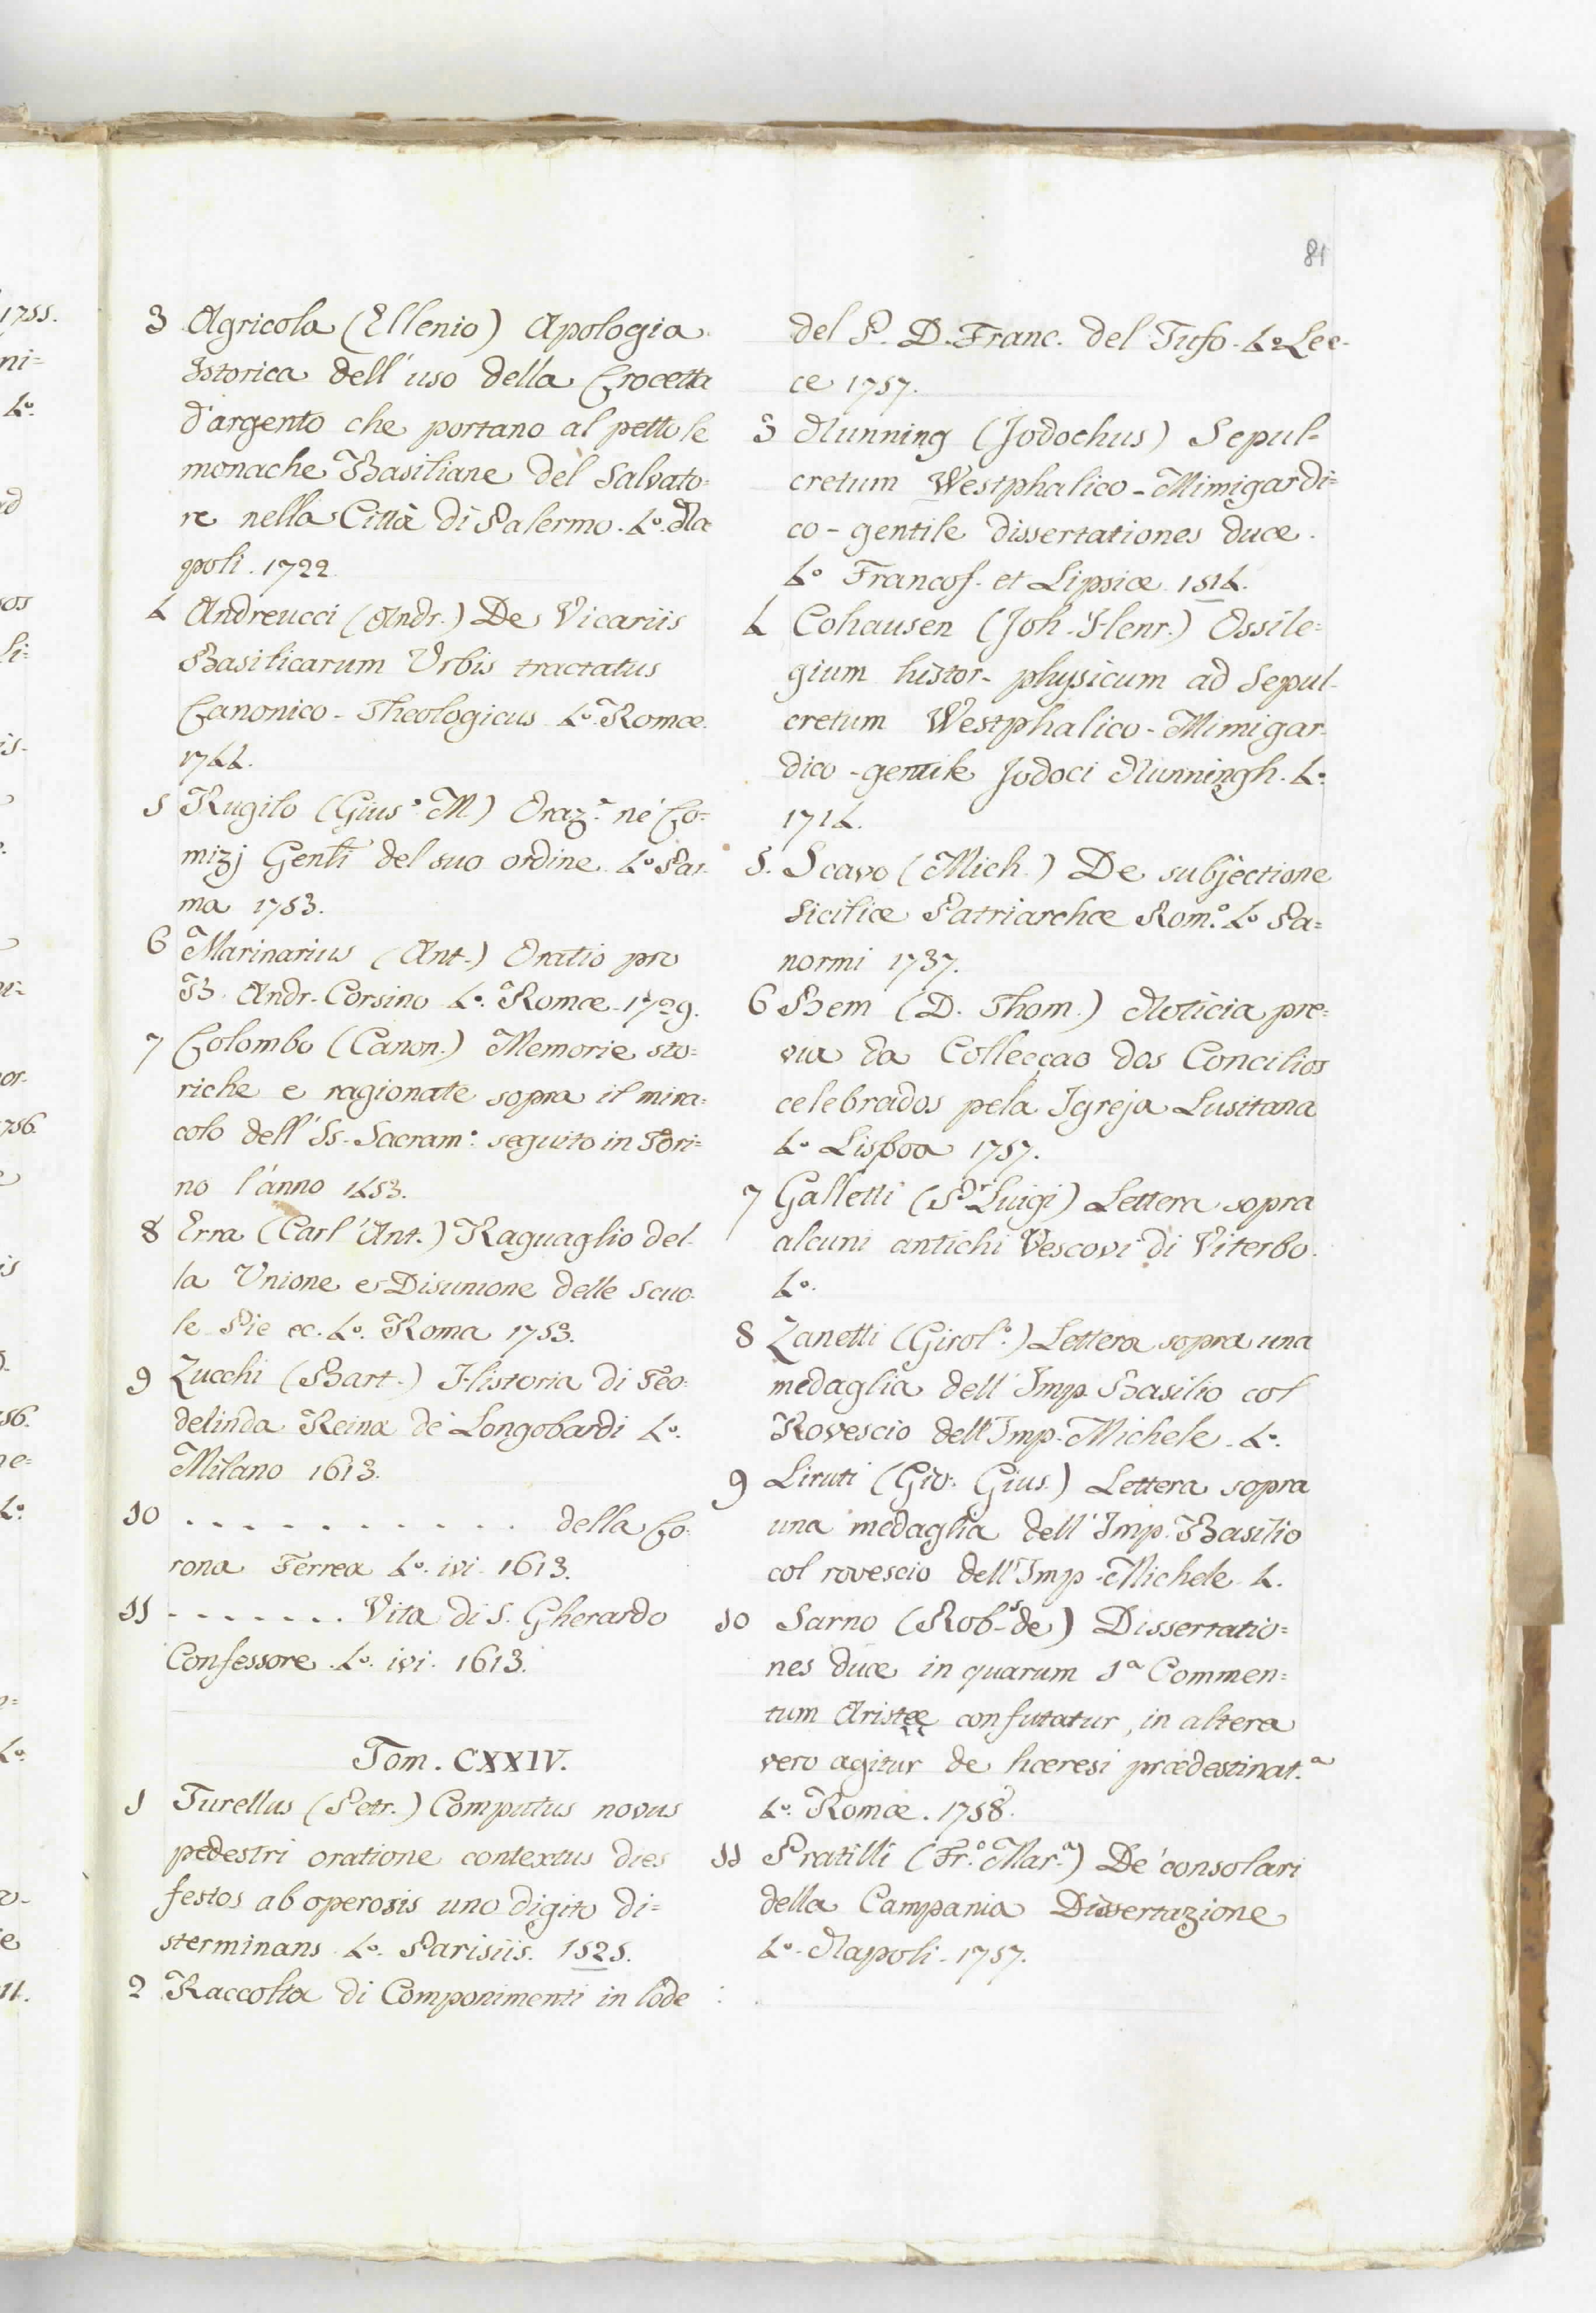 81
3 Agricola (Ellenio) Apologia
Istorica dell'uso della Crocetta
d'argento che portano al petto le
monache Basiliane del Salvato=
re nella Città di Palermo. 4.º Na
poli. 1722.
4 Andreucci (Andr.) De Vicariis
Basilicarum Urbis tractatus
Canonico-Theologicus 4.º Romæ.
1744.
5 Rugilo (Gius.e M.) Oraz.e ne' Co=
mizj Genli del suo ordine. 4.º Par=
ma 1753.
6 Marinarius (Ant.) Oratio pro
B. Andr. Corsino 4.º Romæ. 1729.
7 Colombo (Canon.) Memorie sto=
riche e ragionate sopra il mira=
colo dell' Ss. Sacram.º seguito in Tori=
no l'anno 1453.
8 Erra (Carl'Ant.) Raguaglio del=
la Unione e Disunione delle Scuo=
le Pie ec. 4.º Roma 1753.
9 Zucchi (Bart.) Historia di Teo=
delinda Reina de' Longobardi 4.º
Milano 1613.
10 . . . . . . . . . . . della Co=
rona Ferrea 4.º ivi. 1613.
11 - - - - - . . Vita di S. Gherardo
Confessore. 4.º ivi. 1613.
Tom. CXXIV.
1 Turellus (Petr.) Computus novus
pedestri oratione contextus dies
festos ab operosis uno digito di=
sterminans 4.º Parisiis. 1525.
2 Raccolta di Componimenti in lode
del P. D. Franc. del Tufo. 4.º Lec=
ce 1757.
3 Nunning (Jodochus) Sepul=
cretum Westphalico-Mimigardi=
co-gentile dissertationes duæ.
4.º Francof. et Lipsiæ 1514.
4 Cohausen (Joh. Henr.) Ossile=
gium histor-physicum ad Sepul=
cretum Westphalico-Mimigar=
dico-gentile Jodoci Nunningh. 4.º
1714.
5. Scavo (Mich.) De subjectione
Siciliæ Patriarchæ Rom.º 4.º Pa=
normi 1737.
6 Bem (D. Thom.) Noticia pre=
via da Collecçao dos Concilios
celebrados pela Igreja Lusitana
4.º Lisboa 1757.
7 Galletti (Pr Luigi) Lettera sopra
alcuni antichi Vescovi di Viterbo.
4.º
8 Zanetti (Girol.º) Lettera sopra una
medaglia dell'Imp. Basilio col
Rovescio dell'Imp. Michele. 4.º
9 Liruti (Gio: Gius.) Lettera sopra
una medaglia dell'Imp. Basilio
col rovescio dell'Imp. Michele 4.
10 Sarno (Rob.s de) Dissertatio=
nes duæ in quarum 1.a Commen=
tum Aristeæ confutatur, in altera
vero agitur de hæresi prædestinat.a
4.º Romæ. 1758.
11 Pratilli (Fr.º Mar.a) De' consolari
della Campania Dissertazione
4.º Napoli. 1757.